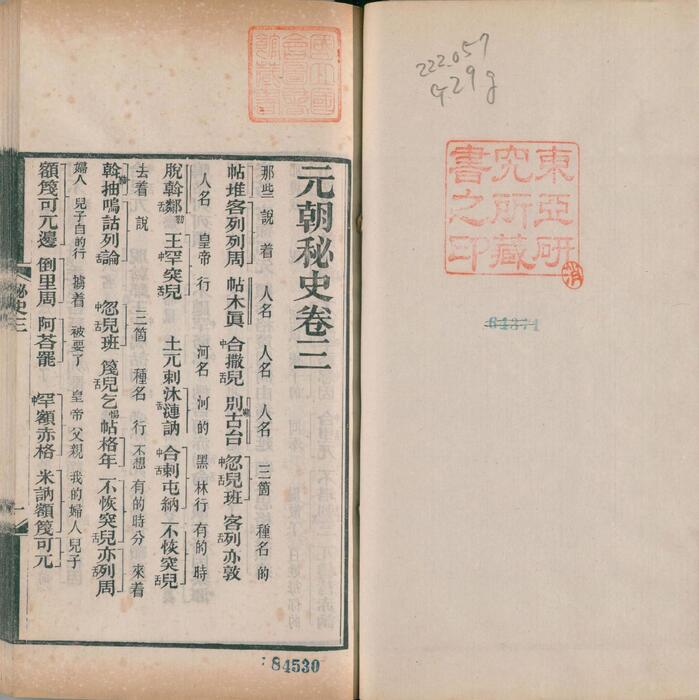 222.057
G29g
東亞研
究所藏
書之印
消
64371
國立國
會圖書
館藏書
元朝秘史卷三
那些 說着 人名 人名 人名 三箇 種名的
帖堆客列列周 帖木眞 中合撒舌兒 別勒古台 中忽舌兒班 客列亦敦
人名 皇帝行 河名 河的 黑林行有的時
脫斡鄰勒舌 王中罕突舌兒 土兀剌沐漣訥 中合舌剌屯納 不恢突舌兒
去着 說 三箇 種名行 不想 有的時分 來着
斡抽嗚詁列論 中忽舌兒班 篾舌兒乞惕 帖格年 不恢突舌兒 亦列周
婦人 兒子自的行 擄着 被要了 皇帝父親 我的婦人 兒子
額篾可兀邊 倒里周 阿荅罷 中罕額赤格 米訥額篾可兀
秘史三
一
84530